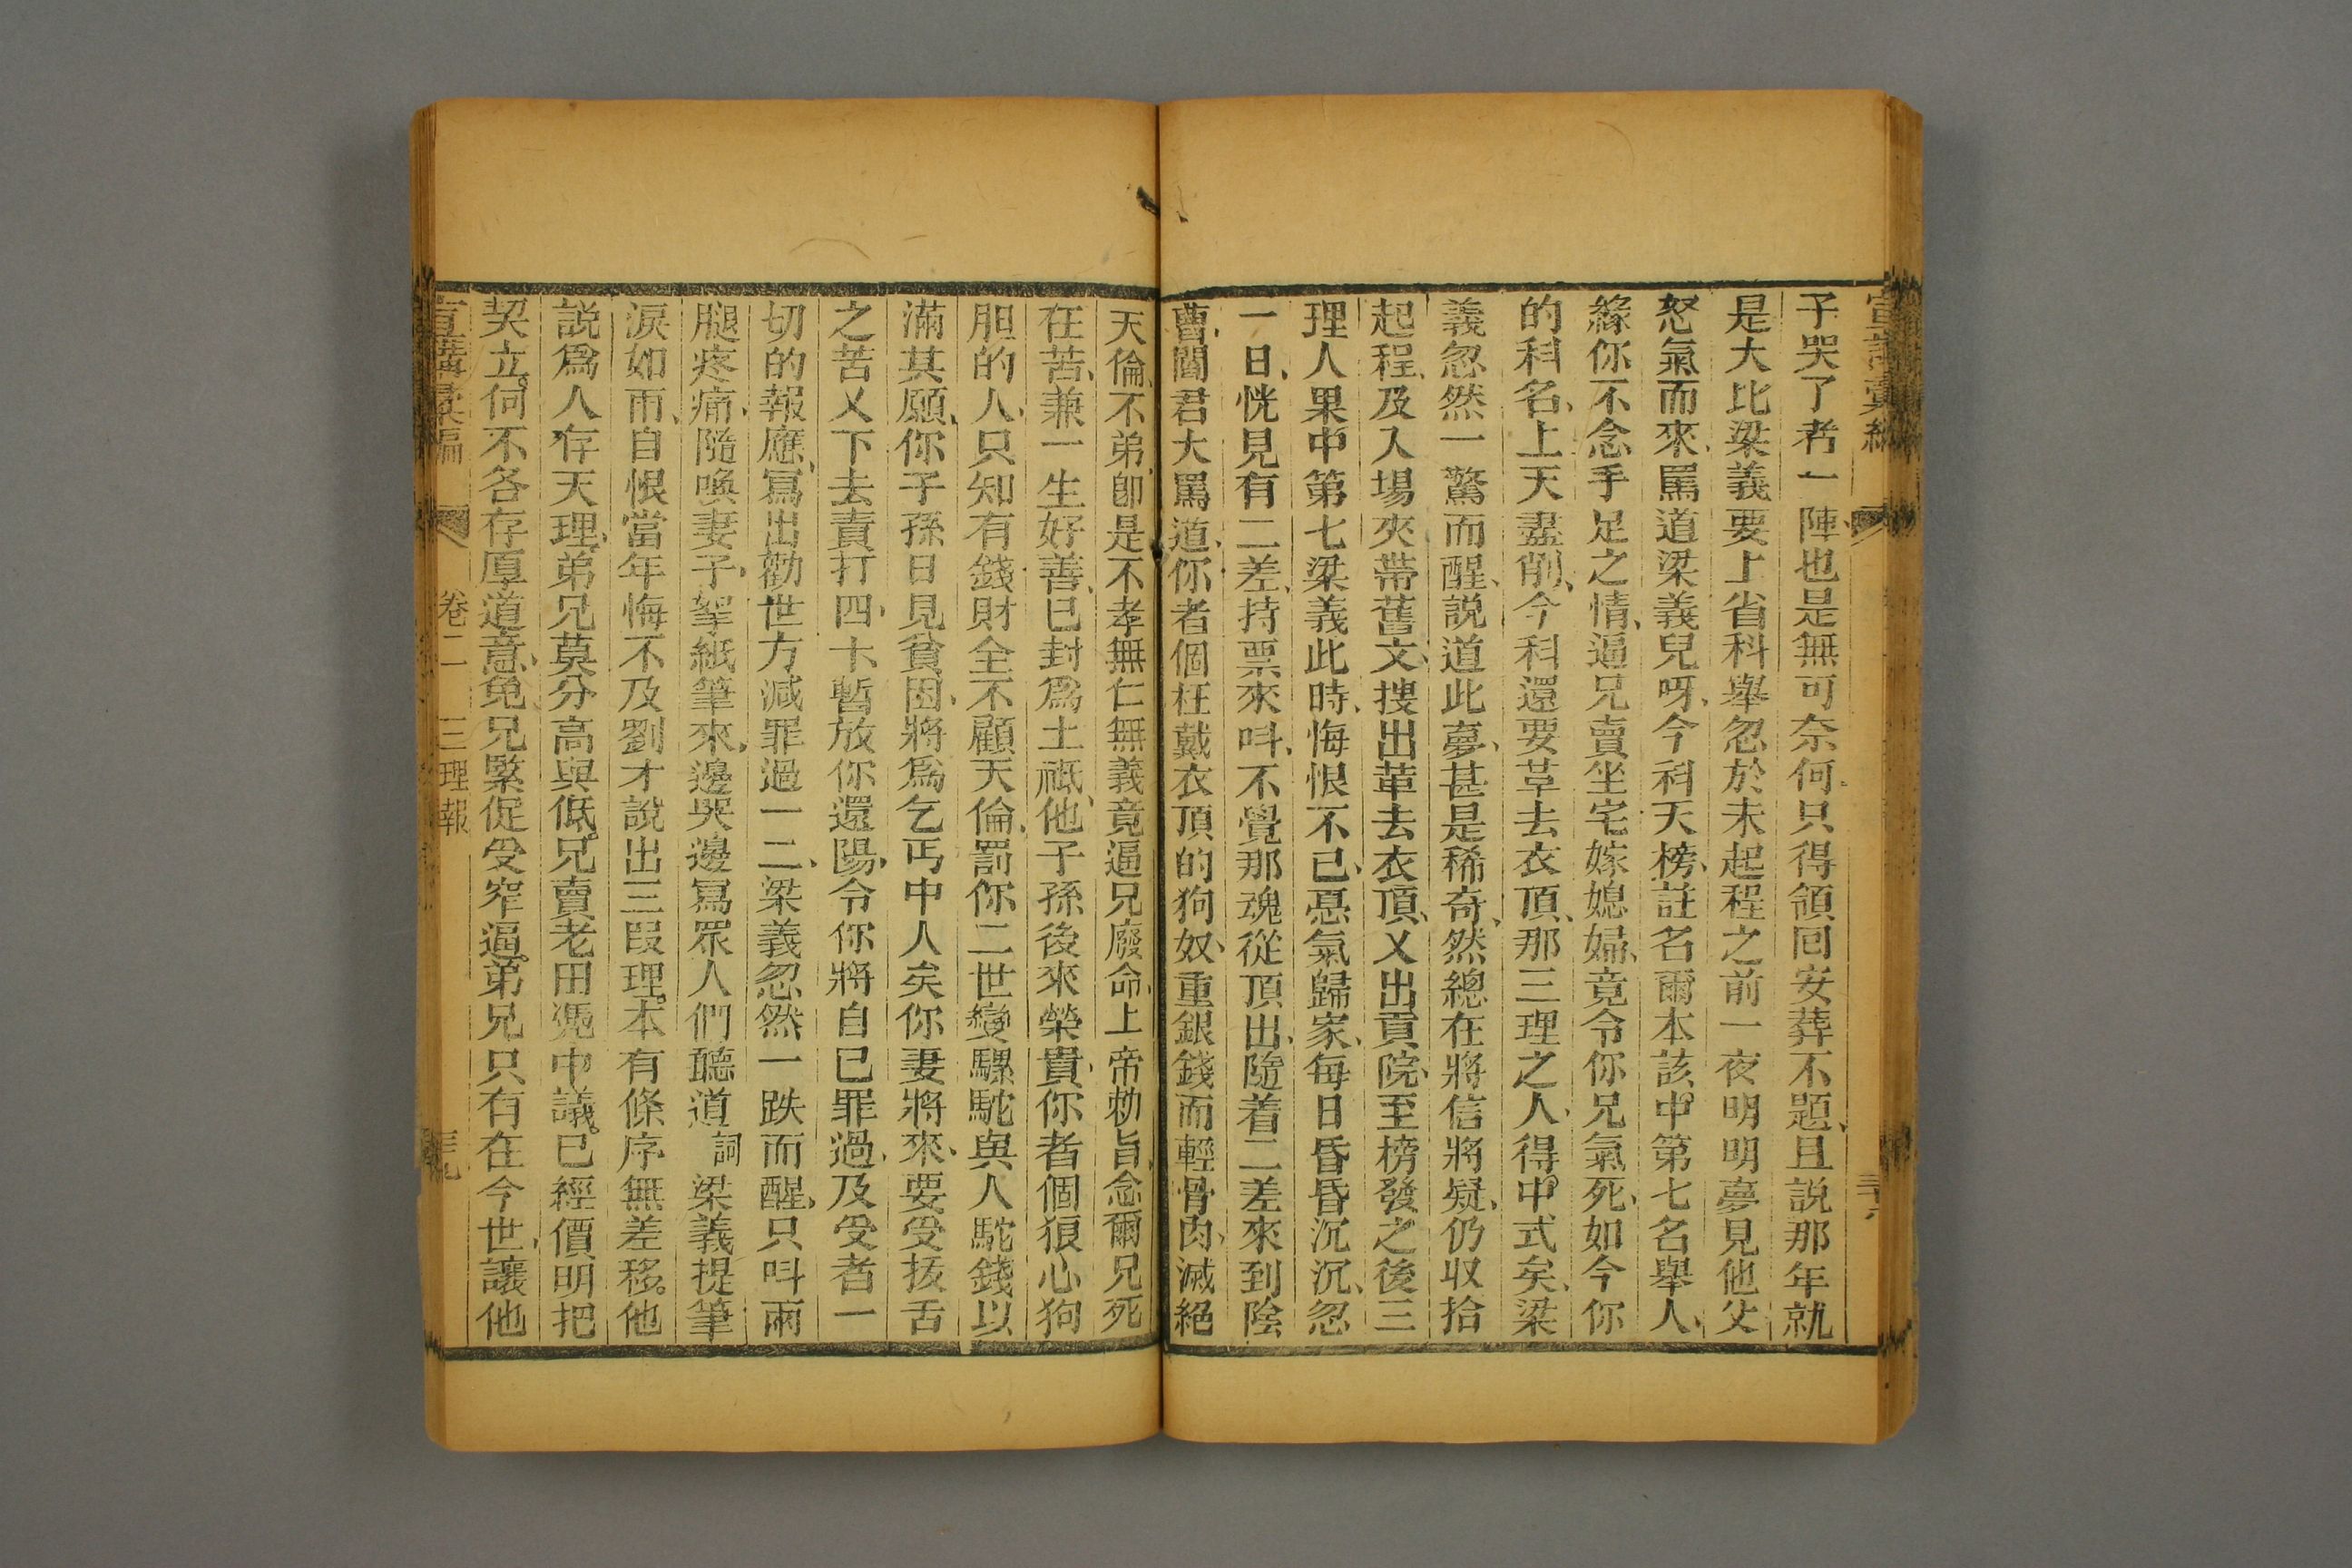 宣講彙編
三十六
子哭了者一陣也是無可奈何只得領回安葬不題、且說那年就
是大比梁義要上省科舉忽於未起程之前一夜明明夢見他父
怒氣而來、罵道梁義兒呀、今科天榜、註名爾本該中第七名舉人、
緣你不念手足之情、逼兄賣坐宅嫁媳婦、竟令你兄氣死、如今你
的科名、上天盡削、今科還要革去衣頂、那三理之人、得中式矣、梁
義忽然一驚而醒、說道此夢、甚是稀奇、然總在將信將疑、仍收拾
起程、及入場夾帶舊文、搜出革去衣頂、又出貢院、至榜發之後三
理人果中第七梁義此時、悔恨不已、忍氣歸家、每日昏昏沉沉、忽
一日、恍見有二差、持票來呌、不覺那魂從頂出、隨着二差來到陰
曹、閻君大罵道、你者個枉戴衣頂的狗奴、重銀錢而輕骨肉、滅絕
天倫、不弟卽是不孝、無仁無義竟逼兄廢命、上帝勅旨、念爾兄死
在苦、兼一生好善、已封爲土祗、他子孫後來榮貴、你者個狼心狗
胆的人、只知有錢財全不顧天倫、罰你二世變騾駝與人駝錢以
滿其願、你子孫日見貧困、將爲乞丐中人矣你妻將來、要受拔舌
之苦又下去責打四十、暫放你還陽、令你將自已罪過、及受者一
切的報應、寫出勸世方減罪過一二、梁義忽然一跌而醒、只呌兩
腿疼痛、隨喚妻子、拏紙筆來、邊哭邊寫眾人們聽道 詞 梁義提筆
淚如雨、自恨當年悔不及劉才說出三叚理。本有條序無差移。他
說爲人存天理、弟兄莫分高與低。兄賣老田憑中議。已經價明把
契立。何不各存厚道意、免兄緊促受窄逼。弟兄只有在今世、讓他
宣講彙編
卷二 三理報
三十七